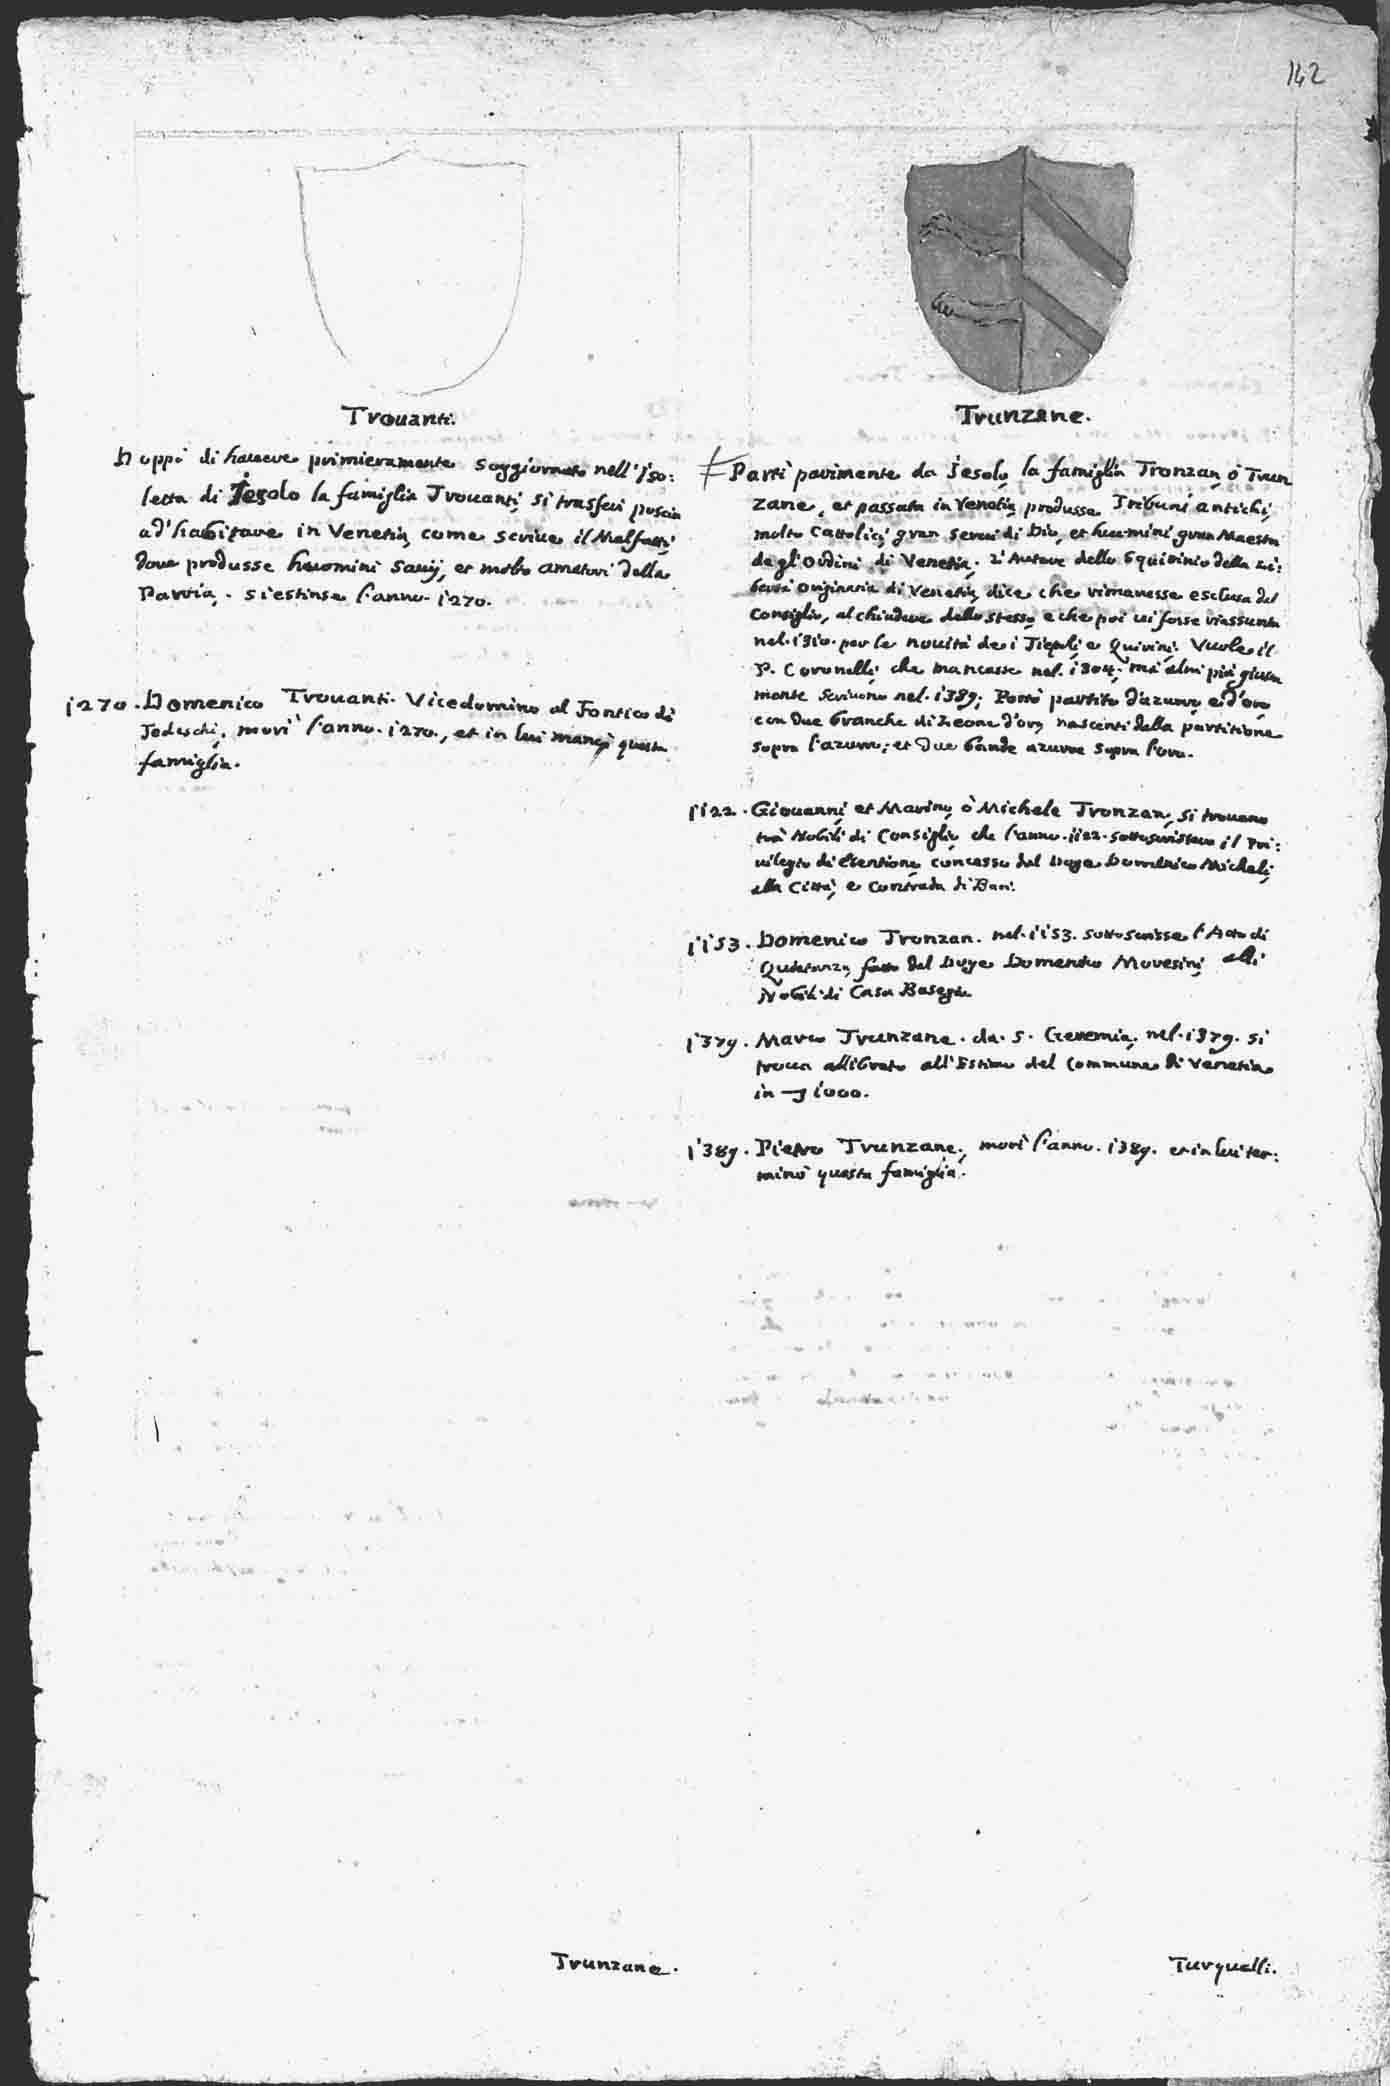 142
Trouanti.
Doppò di hauere primieramente soggiornato nell'Iso:
letta di Iesolo la famiglia Trouanti, si trasferì poscia
ad'habitare in Venetia, come scriue il Malfatti,
doue produsse huomini sauij, et molto amatori della
Patria. Si estinse l'anno. 1270.
1270. Domenico Trouanti. Vicedomino al Fontico di
Tedeschi, morì l'anno. 1270., et in lui mancò questa
famiglia.
Trunzane.
Trunzane.
Partì parimente da Iesolo, la famiglia Tronzan, ò Trun
zane, et passata in Venetia, produsse Tribuni antichi,
molto Cattolici, gran serui di Dio, et huomini, gran Maestri
degl'Ordini di Venetia. L'Autore dello Squitinio della Li:
bertà Originaria di Venetia, dice che rimanesse esclusa dal
Consiglio, al chiudere dello stesso, e che poi vi fosse riassunta
nel. 1310. per le nouità de i Tiepoli, e Quirini. Vuole il
P. Coronelli, che mancasse nel. 1304; mà altri più giusta
mente scriuono nel. 1389; Portò partito d'azurro, e d'oro
con due branche di Leone d'oro, nascenti della partitione
sopra l'azurro; et due bande azurre sopra l'oro.
1122. Giouanni, et Marino, ò Michele Tronzan, si trouano
trà Nobili di Consiglio, che l'anno. 1122. sottoscrissero il Pri:
uilegio di Esentione, concesso dal Doge Domenico Micheli,
alla Città, e Contrada di Bari.
1153. Domenico Tronzan. nel. 1153. sottoscrisse l'Atto di
Quietanza, fatto dal Doge Domenico Moresini, alli
Nobili di Casa Basegio.
1379. Marco Trunzane. da. S. Geremia, nel. 1379. si
troua allibrato all'Estimo del Commune di Venetia
in 1000.
1389. Pietro Trunzane, morì l'anno. 1389. et in lui ter:
minò questa famiglia.
Turquelli.